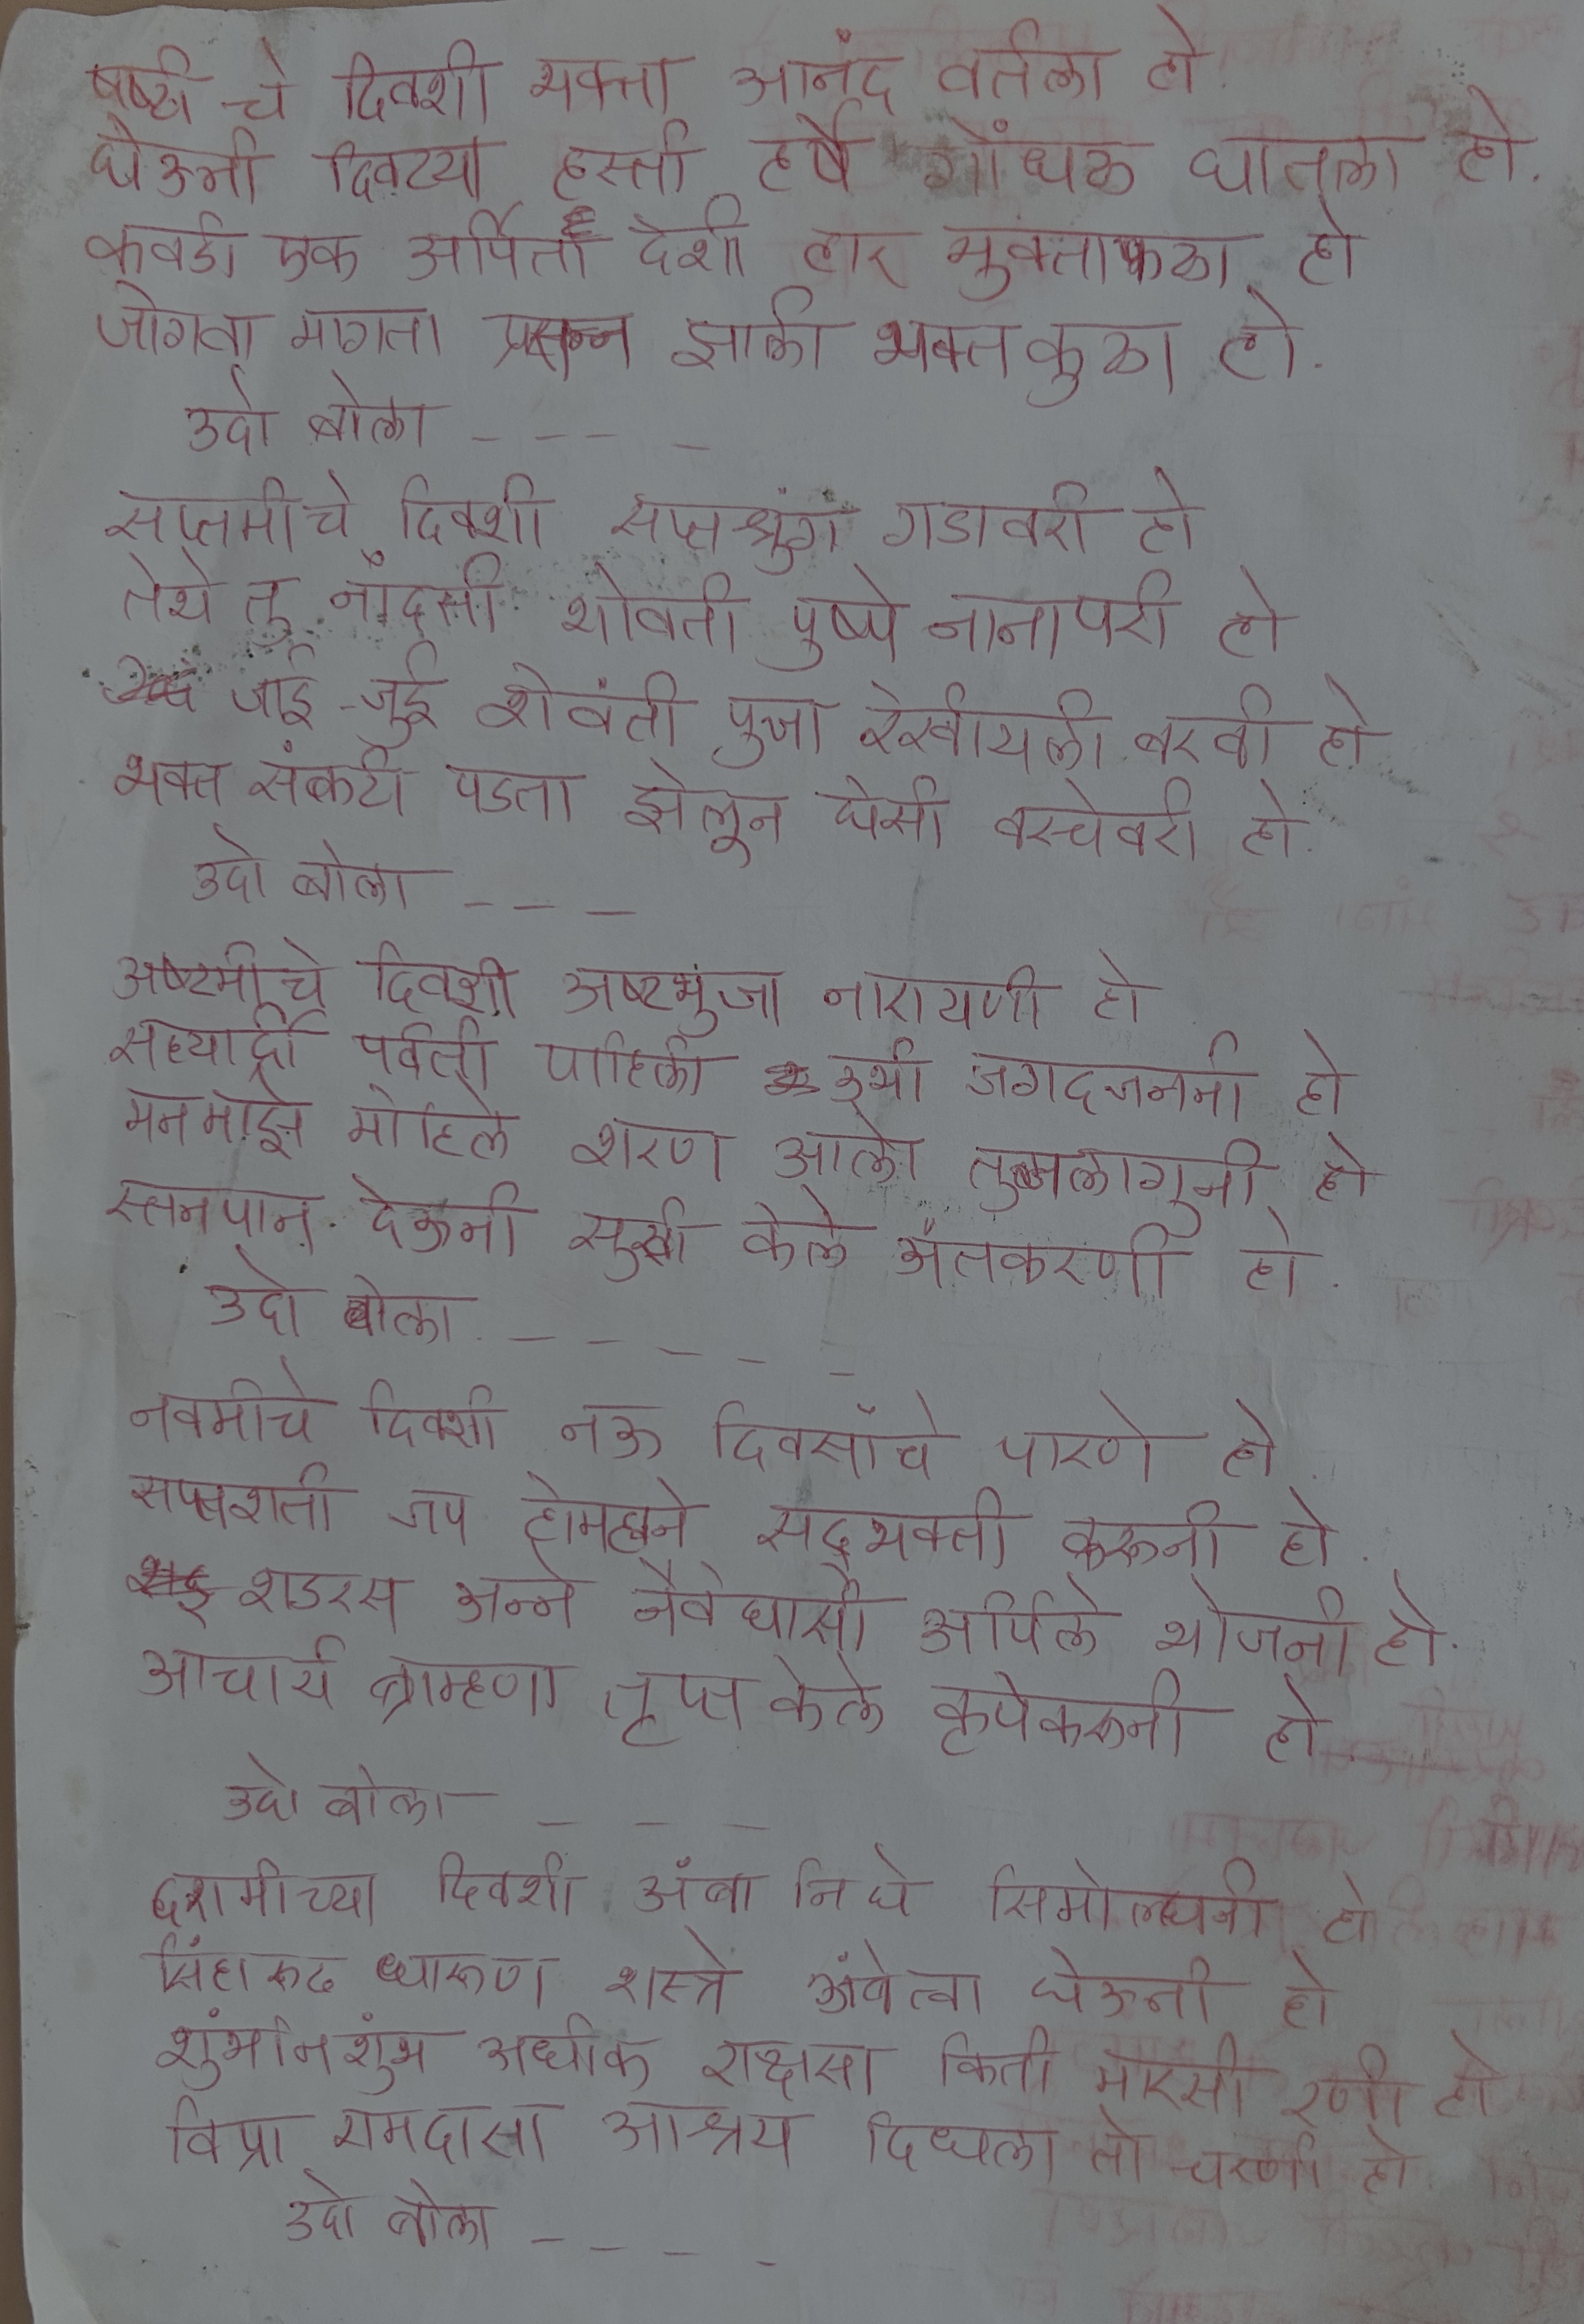 षष्टी चे दिवशी भक्ता आनंद वर्तला हो.
घेऊनी दिवट्या हस्ती हर्षे गोंधळ घातला हो.
कवडी एक अर्पिता देशी हार मुक्ताफळा हो
जोगवा मागता प्रसन्न झाली भक्तकुळा हो.
उदो बोला - - - -
सप्तमीचे दिवशी सप्तश्रुंग गडावरी हो
तेथे तु नांदसी भोवती पुष्पे नानापरी हो
जाई-जुई शेवंती पुजा रेखीयली बरवी हो
भक्त संकटी पडता झेलून घेसी वरचेवरी हो.
उदो बोला - - -
अष्टमीचे दिवशी अष्टभुजा नारायणी हो
सह्याद्री पर्वती पाहिली उभी जगदजननी हो
मनमाझे मोहिले शरण आलो तुजलागुनी हो
स्तनपान देऊनी सुखी केले अंतकरणी हो.
उदो बोला - - - - -
नवमीचे दिवशी नऊ दिवसांचे पारणे हो.
सप्तशती जप होमहवने सद्भक्ती करूनी हो.
शडरस अन्ने नैवेद्यासी अर्पिले भोजनी हो.
आचार्य ब्राम्हणा तृप्त केले कृपेकरूनी हो
उदो बोला - - -
दशमीच्या दिवशी अंबा निघे सिमोल्घनी हो
सिंहारूढ धारूण शस्त्रे अंबेत्वा घेऊनी हो
शुंभनिशुंभ अधीक राक्षसा किती मारसी रणी हो
विप्रा रामदासा आश्रय दिधला तो चरणी हो.
उदो बोला - - - -